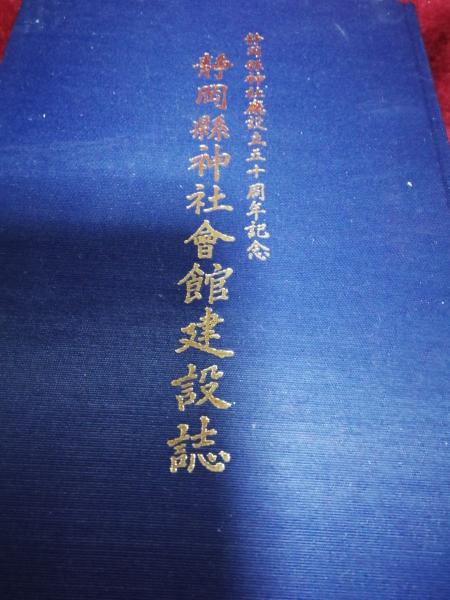 静岡縣神社廳設立五十周年記念
静岡縣神社會館建設誌